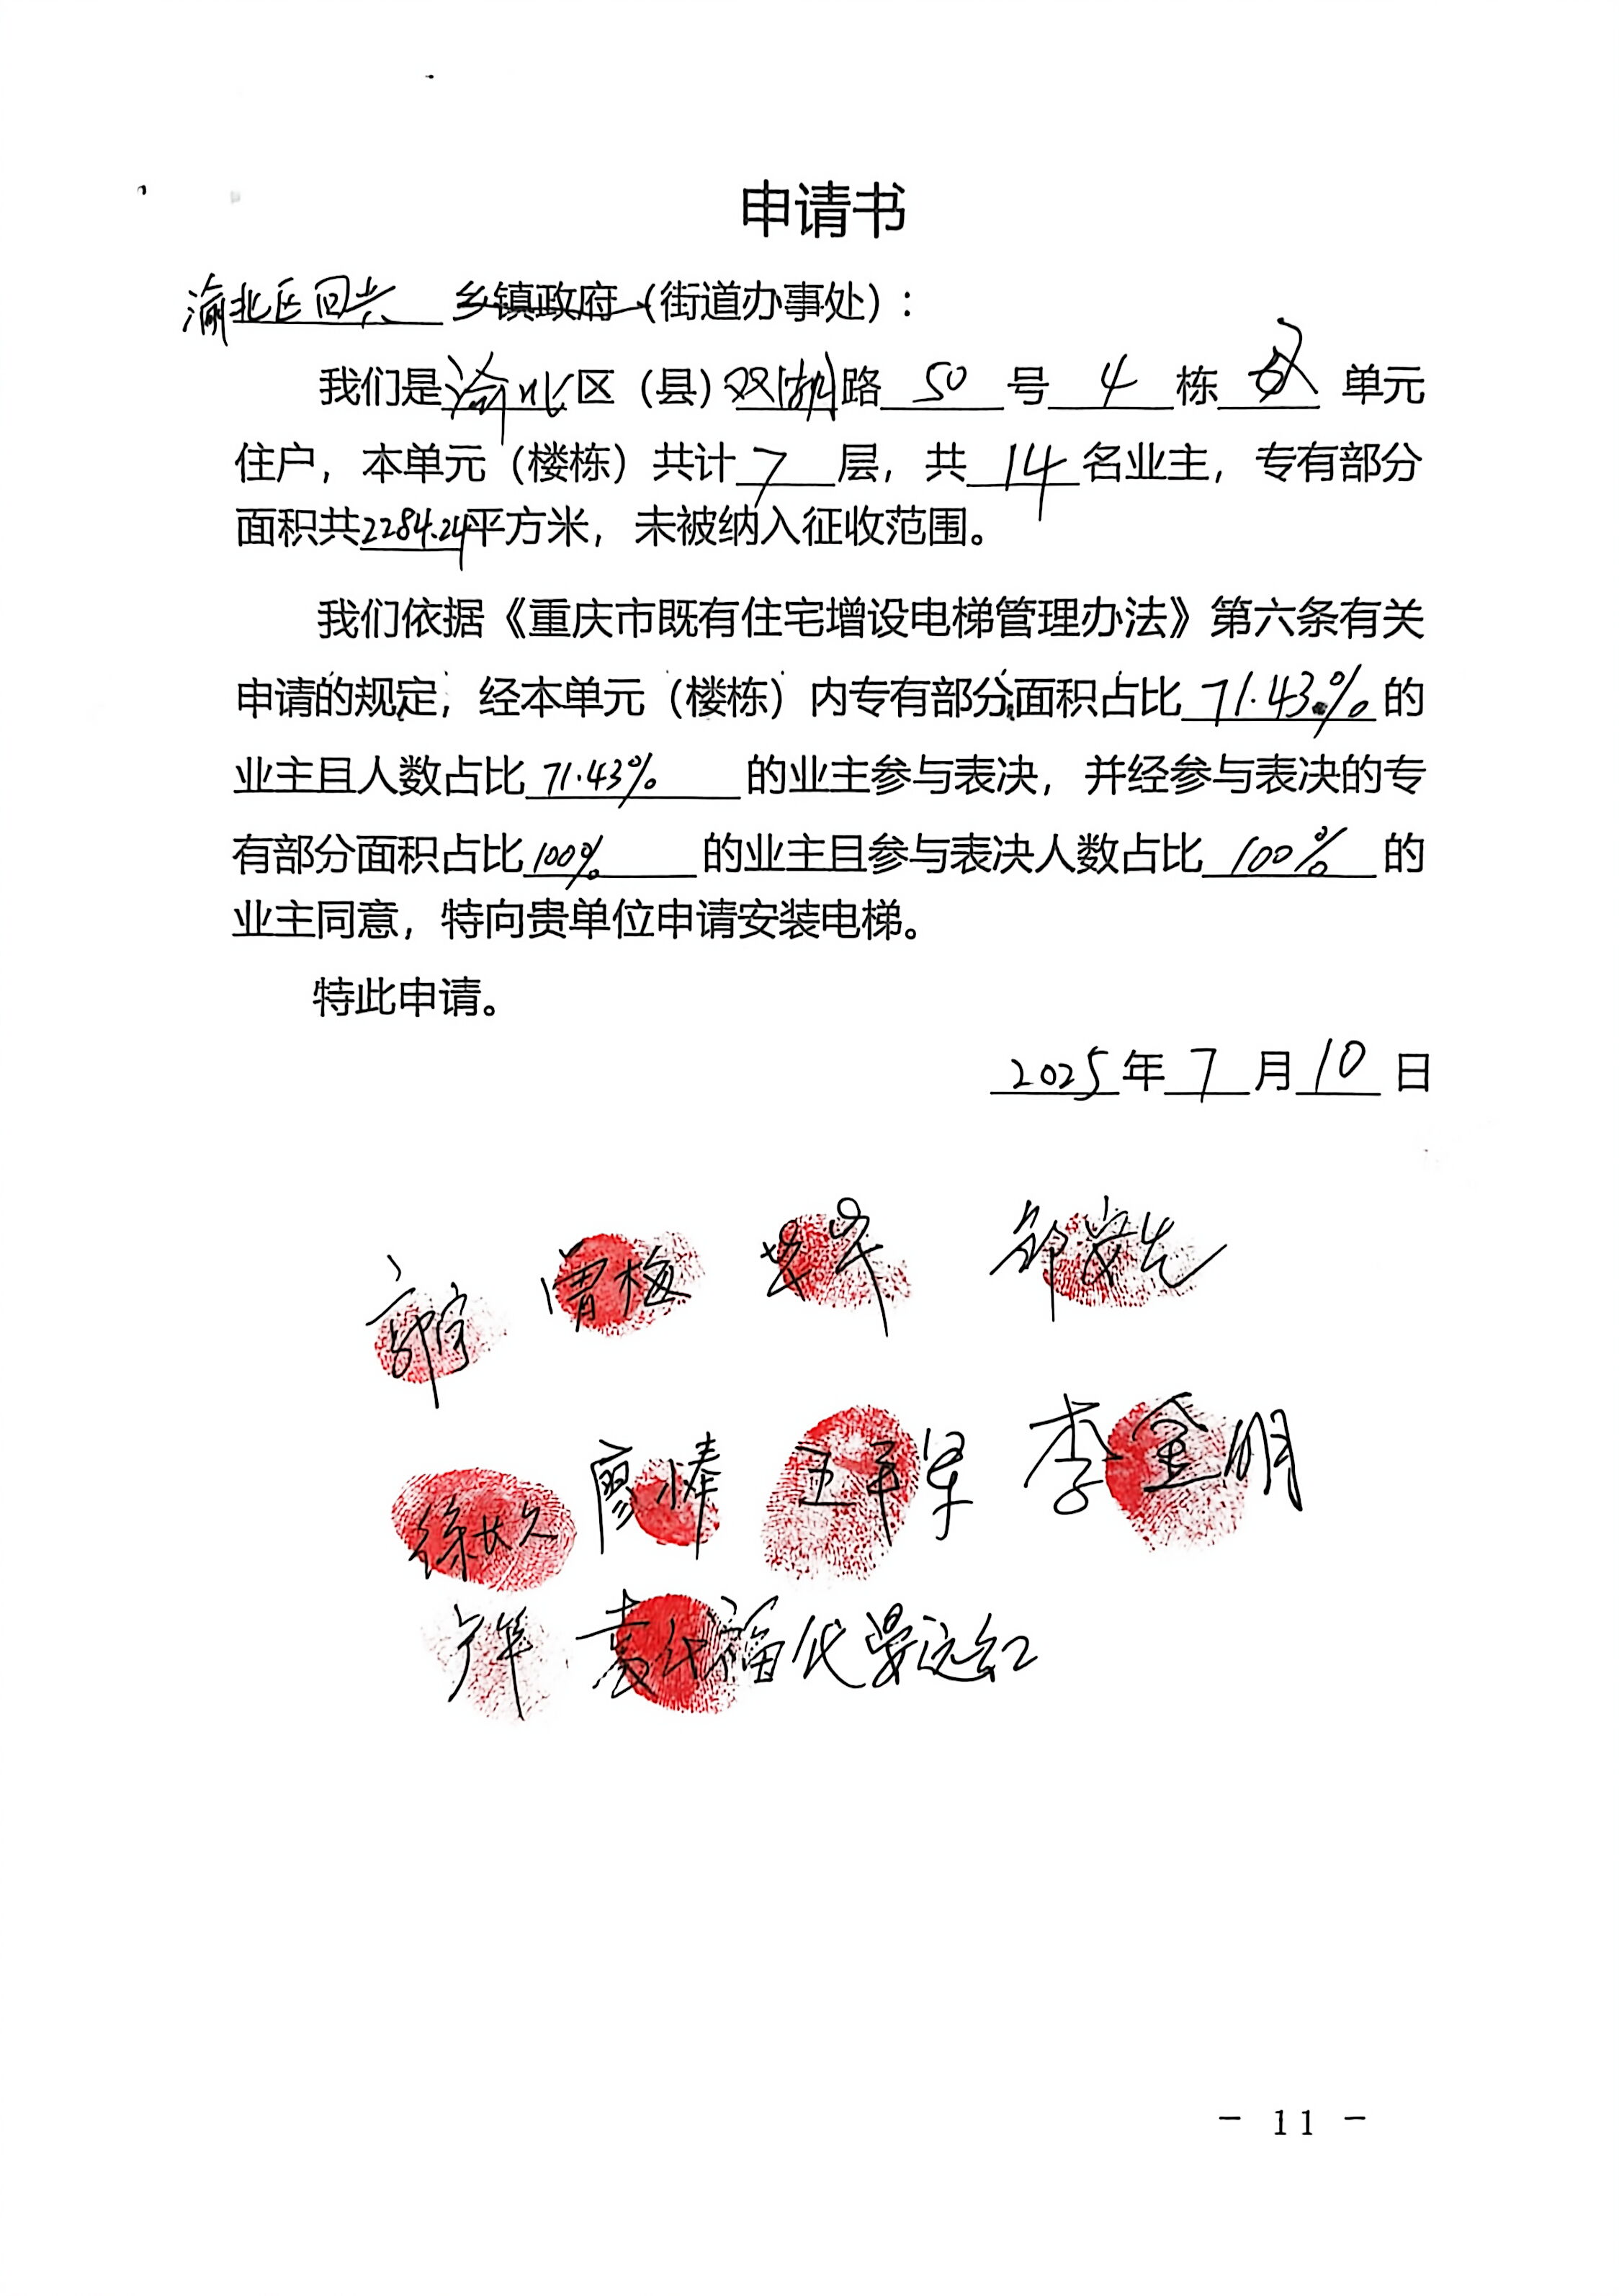 申请书
渝北区回兴 乡镇政府（街道办事处）：
我们是渝北区（县）双湖路 50 号 4 栋 单元
住户，本单元（楼栋）共计 7 层，共 14 名业主，专有部分
面积共2284.24平方米，未被纳入征收范围。
我们依据《重庆市既有住宅增设电梯管理办法》第六条有关
申请的规定，经本单元（楼栋）内专有部分面积占比 71.43% 的
业主且人数占比 71.43% 的业主参与表决，并经参与表决的专
有部分面积占比 100% 的业主且参与表决人数占比 100% 的
业主同意，特向贵单位申请安装电梯。
特此申请。
2025 年 7 月 10 日
徐长久 廖棒 李金明
袁代福代晏远红
- 11 -